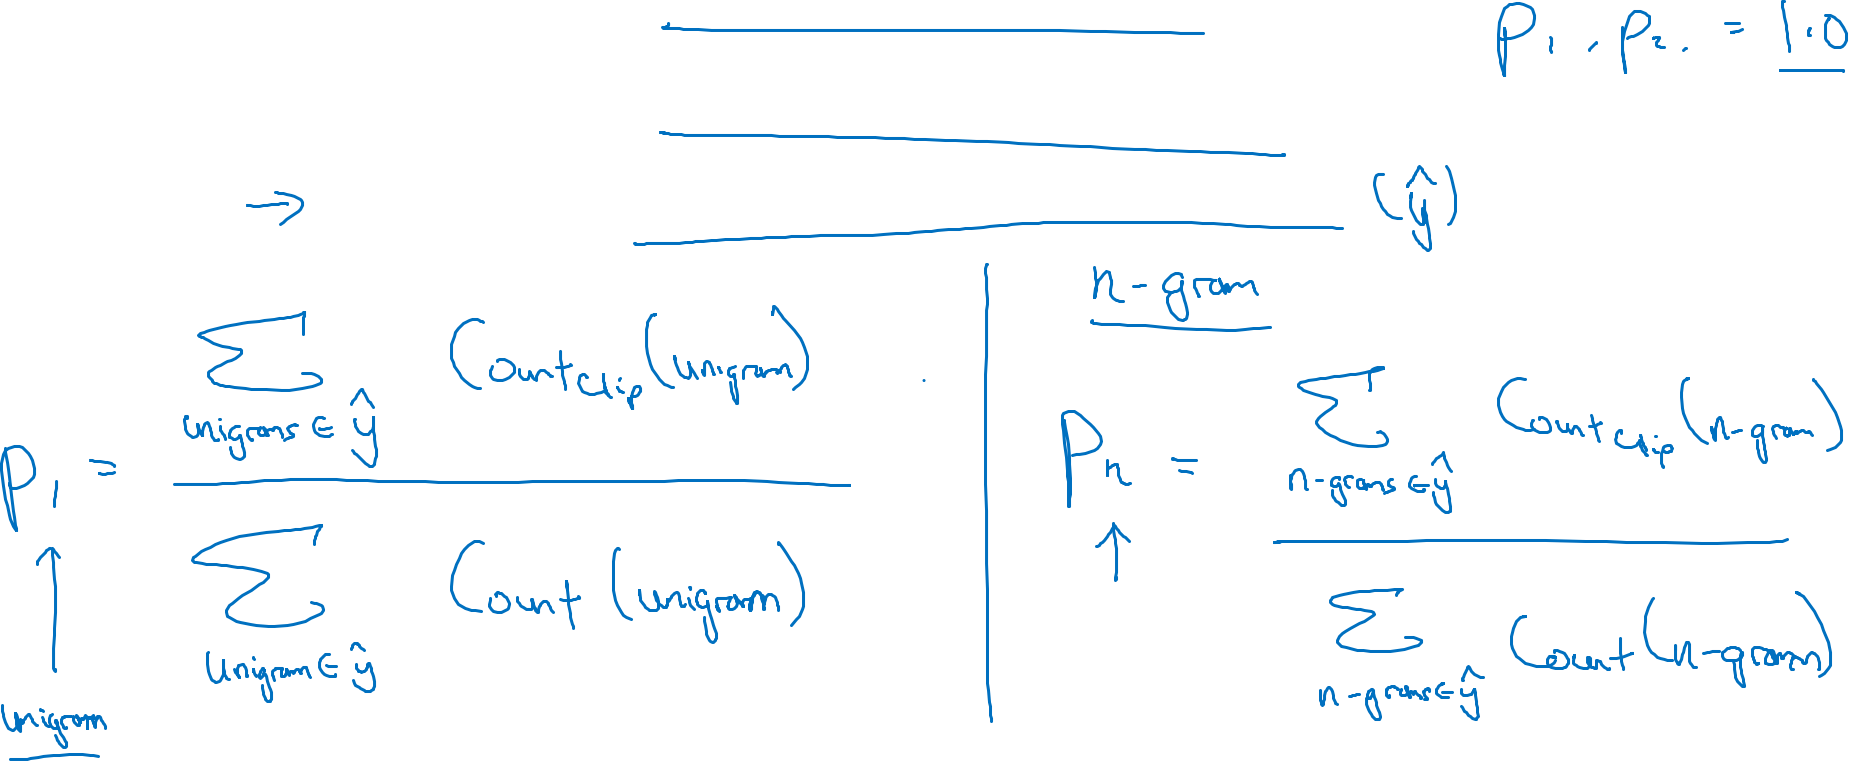 P₁, P₂. = 1.0
→ (ŷ)
n-gram
P₁ = Σ unigrams ∈ ŷ Count clip (unigram)
Σ unigram ∈ ŷ Count (unigram)
↑
unigram
Pₙ = Σ n-grams ∈ ŷ Count clip (n-gram)
Σ n-grams ∈ ŷ Count (n-gram)
↑